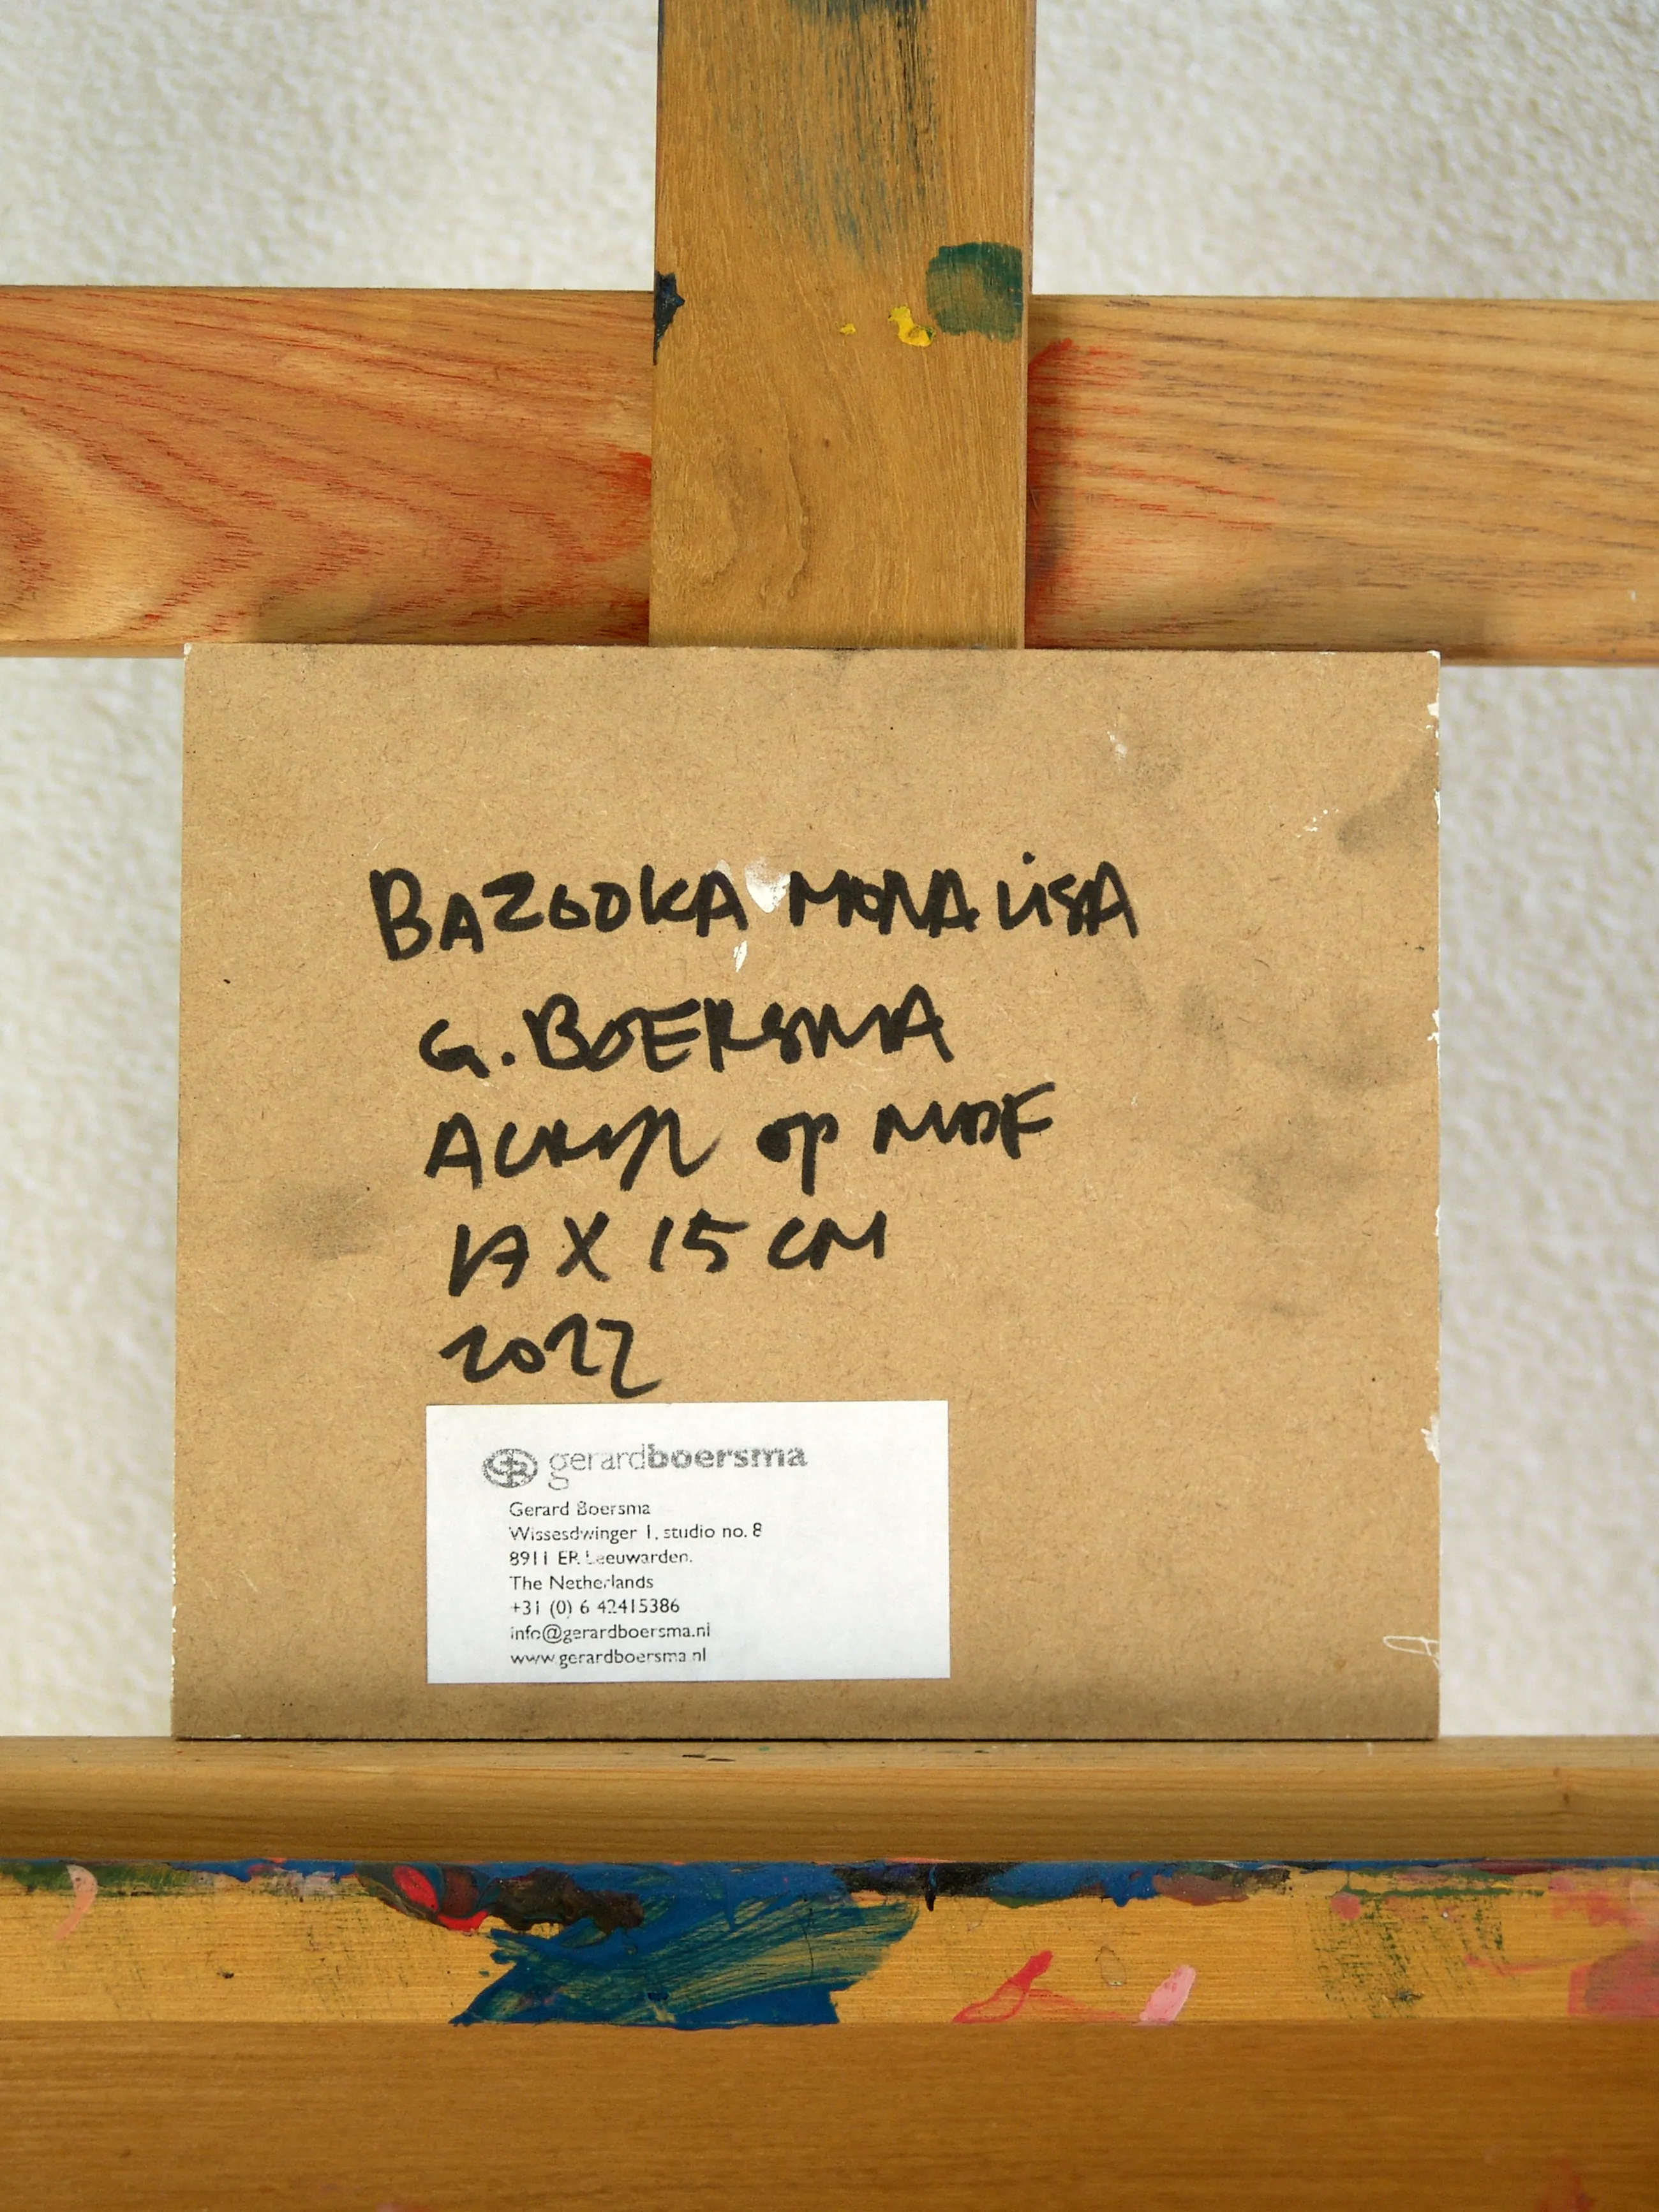 BAZOOKA MONA LISA
G. BOERSMA
ACRYL op MDF
17 X 15 CM
2022
gerardboersma
Gerard Boersma
Wissesdwinger 1, studio no. 8
8911 ER Leeuwarden,
The Netherlands
+31 (0) 6 42415386
info@gerardboersma.nl
www.gerardboersma.nl